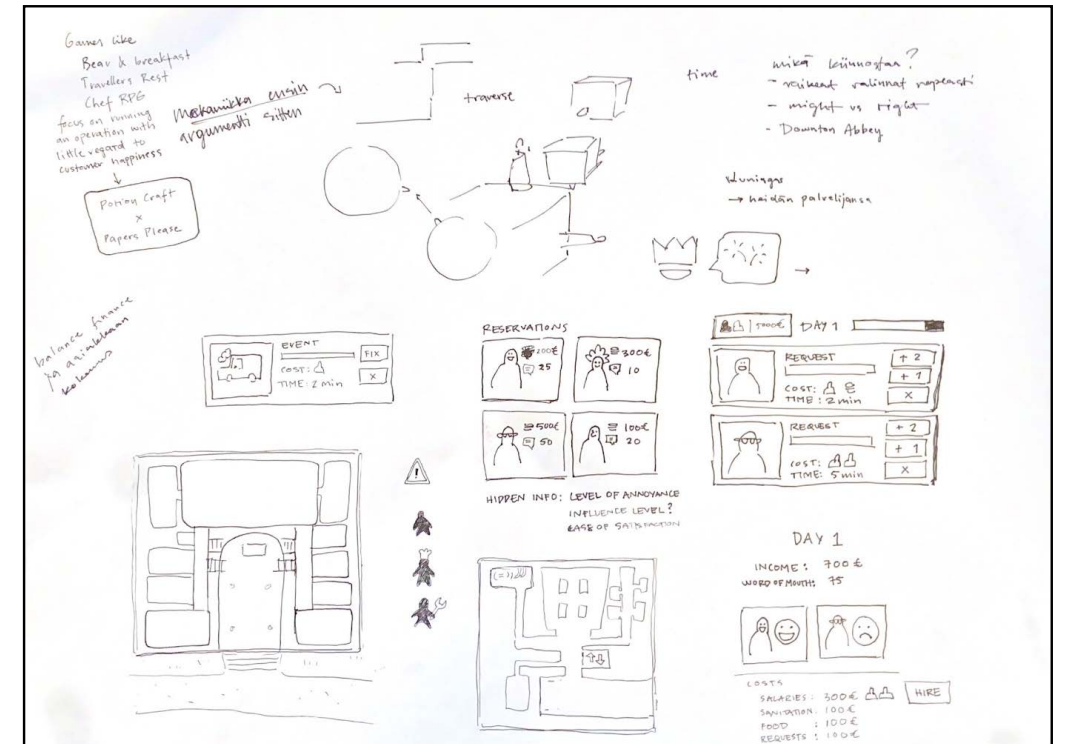 Games like
Bear & breakfast
Travellers Rest
Chef RPG
focus on running
an operation with
little regard to
customer happiness
Potion Craft
x
Papers Please
Mekaniikka ensin
argumentti sitten
traverse
time
mikä kiinnostaa?
- vaikeat valinnat nopeasti
- might vs right
- Downton Abbey
kuningas
→ heidän palvelijansa
balance finance
ja asiakkaan
kokemus
EVENT
COST:
TIME: 2 min
FIX
X
RESERVATIONS
200€
25
300€
10
500€
50
100€
20
HIDDEN INFO: LEVEL OF ANNOYANCE
INFLUENCE LEVEL?
EASE OF SATISFACTION
5000€ DAY 1
REQUEST
COST:
TIME: 2 min
+ 2
+ 1
X
REQUEST
COST:
TIME: 5 min
+ 2
+ 1
X
DAY 1
INCOME: 700€
WORD OF MOUTH: 75
COSTS
SALARIES: 300€
HIRE
SANITATION: 100€
FOOD : 100€
REQUESTS : 100€